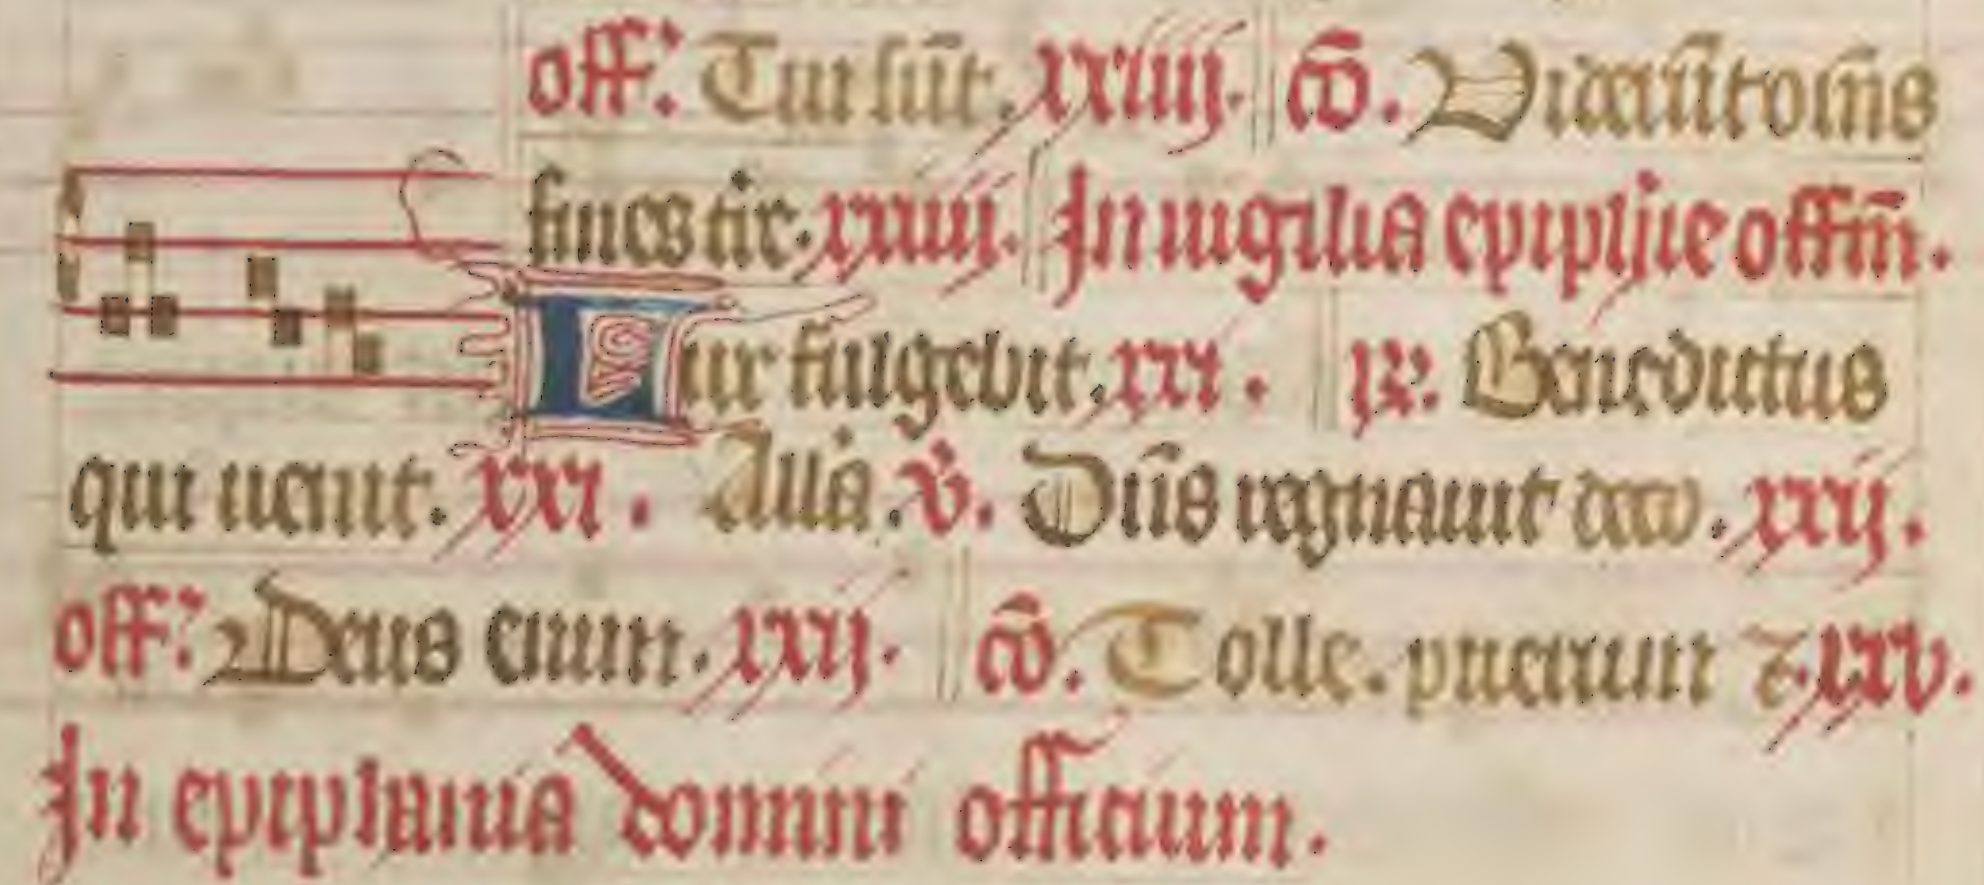 off. Tui sūt. xxiiij. cō. Viderūt om̄s
fines t̄re. xxiiij. In uigilia epiphīe offm̄.
Lux fulgebit. xxi. R. Benedictus
qui uenit. xxi. Alla. v̄. Dn̄s regnauit deco. xxij.
off. Deus enim. xxij. cō. Tolle. puerum ⁊. xxv.
In epiphania domini officium.